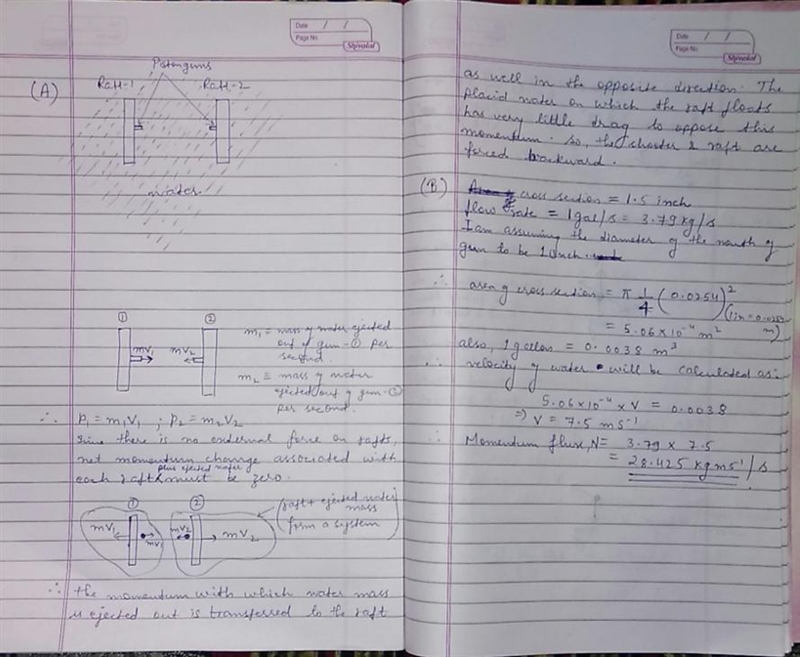 Date / /
Page No.
Shivalal
Potonguns
(A) Raft-1 Raft-2
water
① ②
mV₁ mV₂
m₁ = mass of water ejected
out of gun-① per
second.
m₂ = mass of water
ejected out of gun-②
per second.
∴ P₁ = m₁V₁ ; P₂ = m₂V₂
Since there is no external force on rafts,
net momentum change associated with
plus ejected water
each raft must be zero.
① ②
mV₁ mV₁ mV₂ mV₂
raft + ejected water
mass
form a system
∴ the momentum with which water mass
is ejected out is transferred to the raft
Date / /
Page No.
Shivalal
as well in the opposite direction. The
placid water on which the raft floats
has very little drag to oppose this
momentum. So, the shooter & raft are
forced backward.
(B) Area of cross section = 1.5 inch
flow rate = 1 gal/s = 3.79 kg/s
I am assuming the diameter of the mouth of
gun to be 1 inch.
∴ area of cross section = π 1/4 (0.0254)²
(1in = 0.0254 m)
= 5.06×10⁻⁴ m²
also, 1 gallon = 0.0038 m³
∴ velocity of water will be calculated as:-
5.06×10⁻⁴ × V = 0.0038
⇒ V = 7.5 ms⁻¹
∴ Momentum flux, N = 3.79 × 7.5
= 28.425 kg ms⁻¹/s